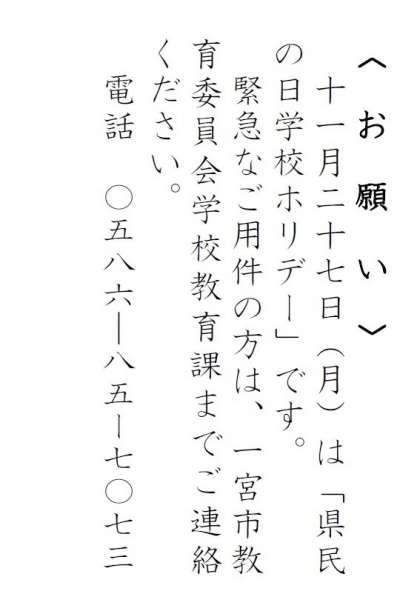 〈お願い〉
十一月二十七日（月）は「県民
の日学校ホリデー」です。
緊急なご用件の方は、一宮市教
育委員会学校教育課までご連絡
ください。
電話　〇五八六―八五―七〇七三